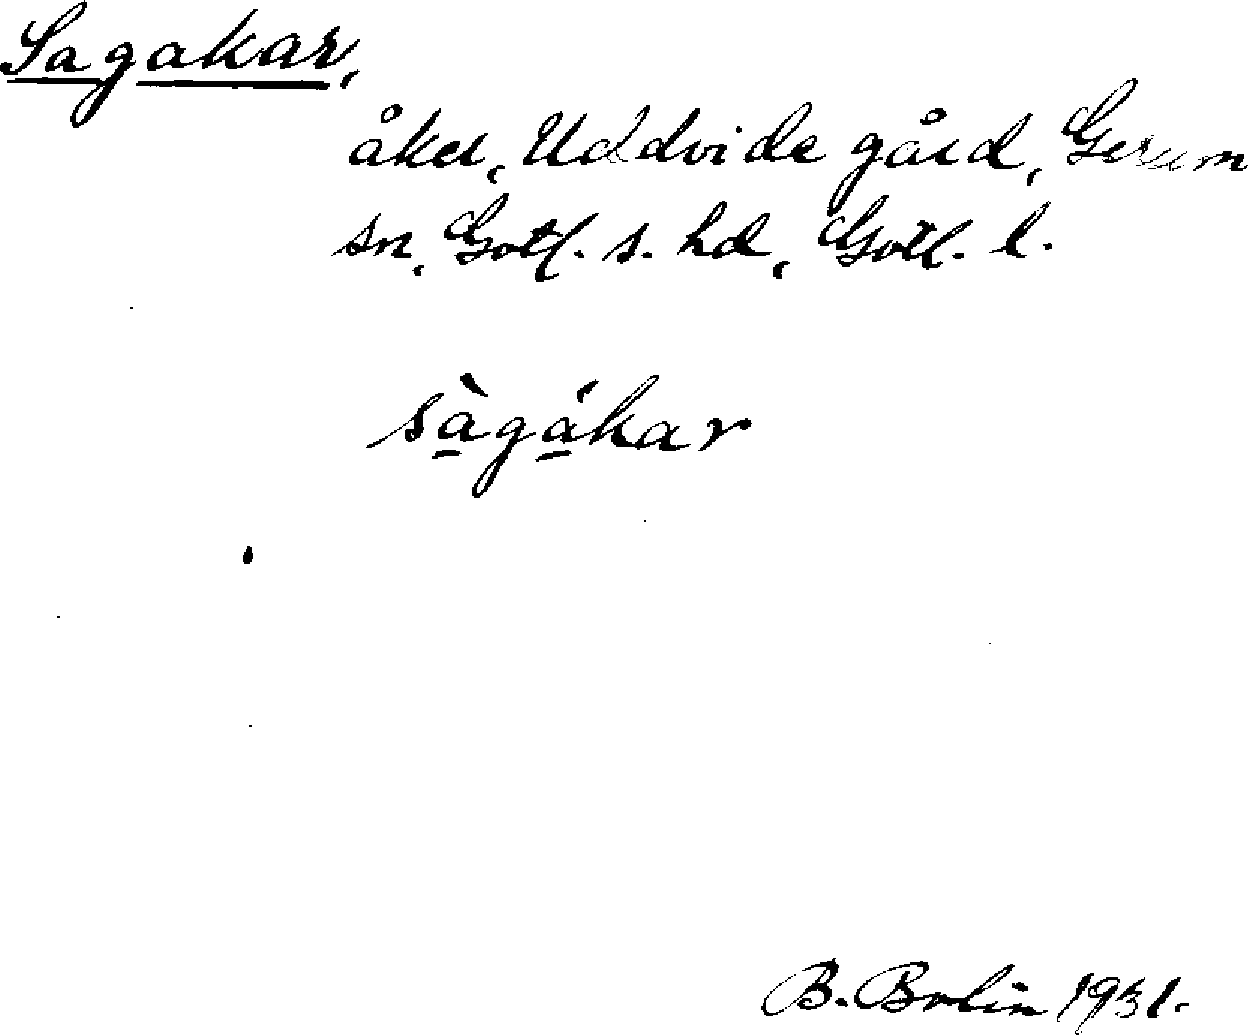 Sagakar,
åker, Uddvide gård, Gerum
sn, Gotl. s. hd, Gotl. l.
sà̲gá̲kar
B. Bolin 1931.